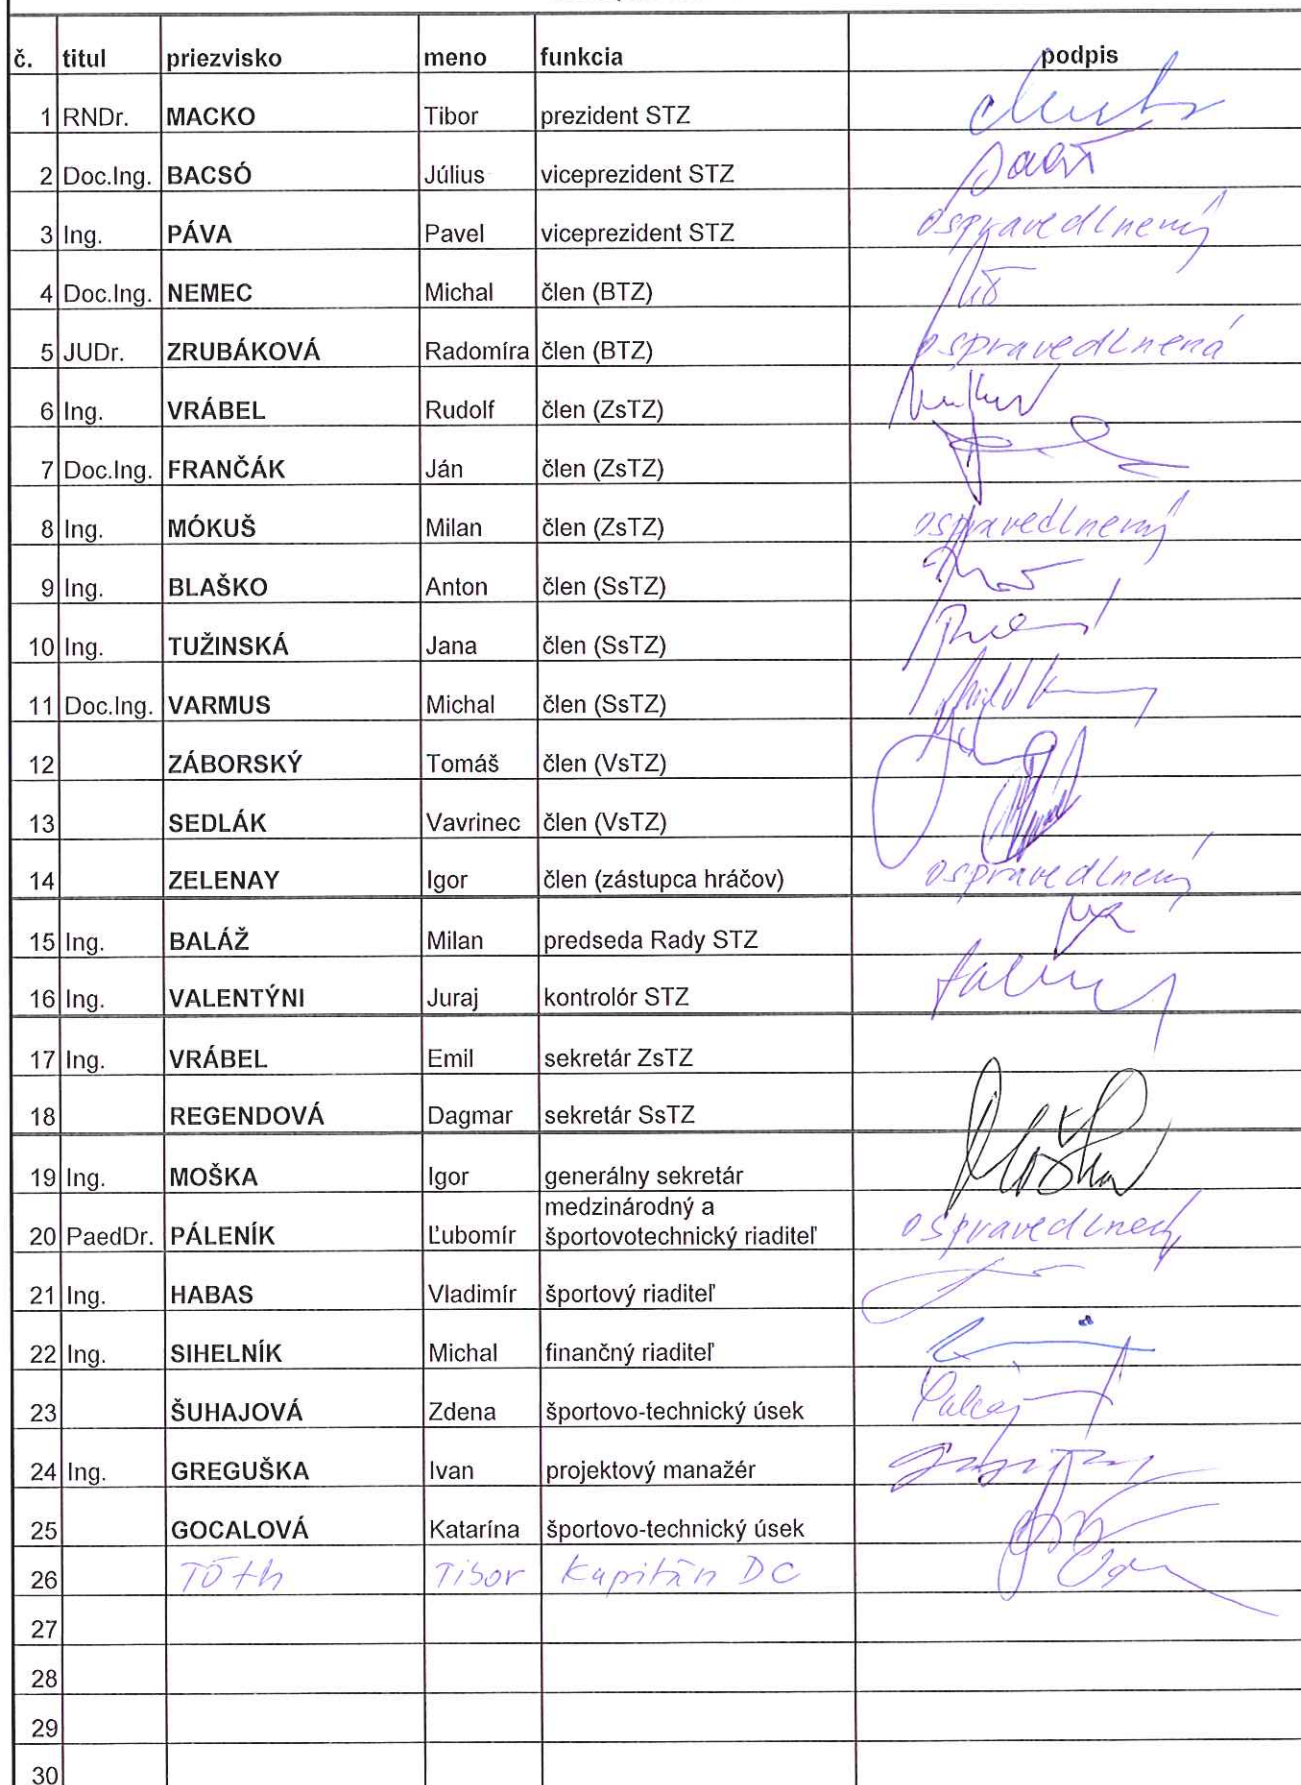 č. titul priezvisko meno funkcia podpis
1 RNDr. MACKO Tibor prezident STZ
2 Doc.Ing. BACSÓ Július viceprezident STZ
3 Ing. PÁVA Pavel viceprezident STZ ospravedlnený
4 Doc.Ing. NEMEC Michal člen (BTZ)
5 JUDr. ZRUBÁKOVÁ Radomíra člen (BTZ) ospravedlnená
6 Ing. VRÁBEL Rudolf člen (ZsTZ)
7 Doc.Ing. FRANČÁK Ján člen (ZsTZ)
8 Ing. MÓKUŠ Milan člen (ZsTZ) ospravedlnený
9 Ing. BLAŠKO Anton člen (SsTZ)
10 Ing. TUŽINSKÁ Jana člen (SsTZ)
11 Doc.Ing. VARMUS Michal člen (SsTZ)
12 ZÁBORSKÝ Tomáš člen (VsTZ)
13 SEDLÁK Vavrinec člen (VsTZ)
14 ZELENAY Igor člen (zástupca hráčov) ospravedlnený
15 Ing. BALÁŽ Milan predseda Rady STZ
16 Ing. VALENTÝNI Juraj kontrolór STZ
17 Ing. VRÁBEL Emil sekretár ZsTZ
18 REGENDOVÁ Dagmar sekretár SsTZ
19 Ing. MOŠKA Igor generálny sekretár
medzinárodný a
20 PaedDr. PÁLENÍK Ľubomír športovotechnický riaditeľ ospravedlnený
21 Ing. HABAS Vladimír športový riaditeľ
22 Ing. SIHELNÍK Michal finančný riaditeľ
23 ŠUHAJOVÁ Zdena športovo-technický úsek
24 Ing. GREGUŠKA Ivan projektový manažér
25 GOCALOVÁ Katarína športovo-technický úsek
26 Tóth Tibor Kapitán DC
27
28
29
30